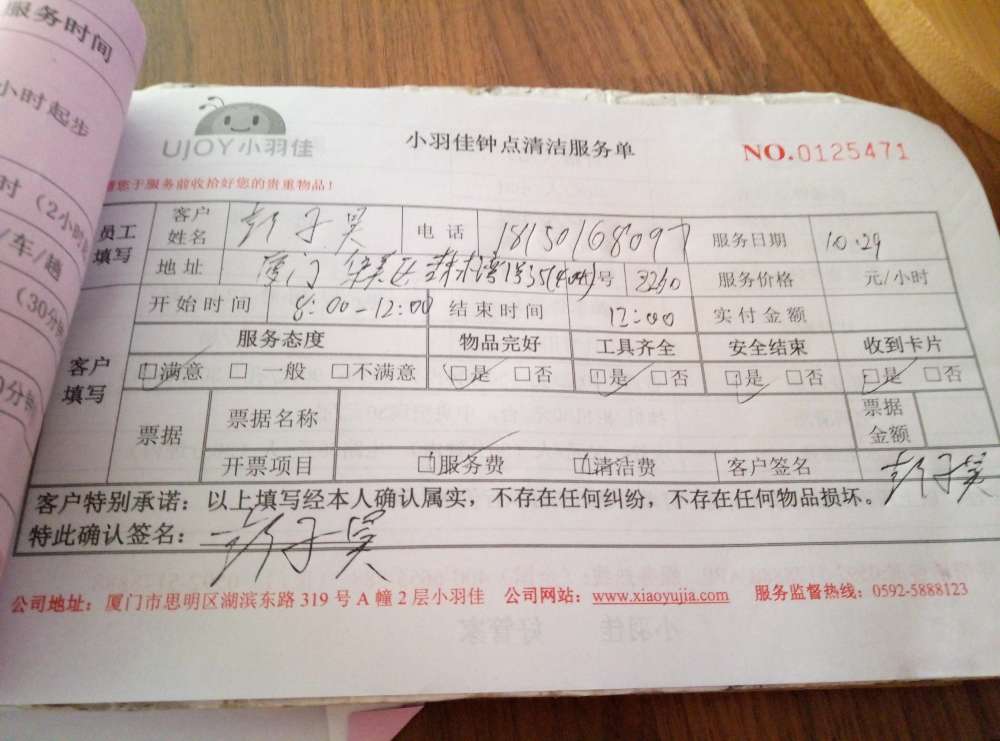 服务时间
小时起步
时（2小时
/车/趟
（30分钟
0分钟
UJOY小羽佳
小羽佳钟点清洁服务单
NO.0125471
您于服务前收拾好您的贵重物品！
员工填写
客户姓名 彭子昊 电话 18150168097 服务日期 10.29
地址 厦门 号 服务价格 元/小时
开始时间 8:00-12:00 结束时间 12:00 实付金额
客户填写
服务态度 物品完好 工具齐全 安全结束 收到卡片
□满意 □一般 □不满意 □是 □否 □是 □否 □是 □否 □是 □否
票据 票据名称 票据金额
开票项目 □服务费 □清洁费 客户签名 彭子昊
客户特别承诺：以上填写经本人确认属实，不存在任何纠纷，不存在任何物品损坏。
特此确认签名：彭子昊
公司地址：厦门市思明区湖滨东路 319 号 A 幢 2 层小羽佳 公司网站：www.xiaoyujia.com 服务监督热线：0592-5888123